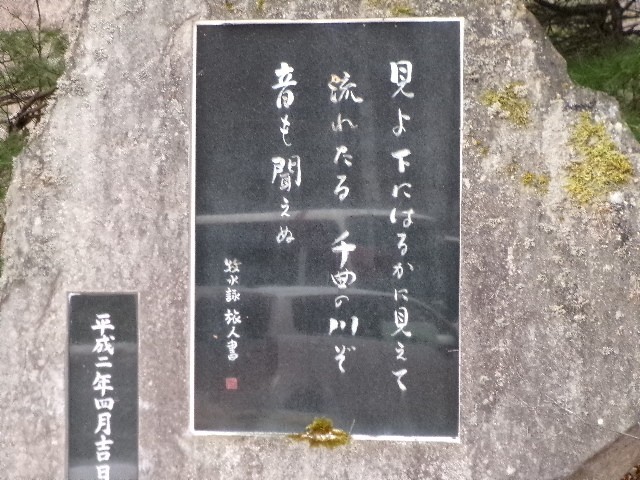 見よ下にはるかに見えて
流れたる千曲の川ぞ
音も聞えぬ
牧水詠 旅人書
平成二年四月吉日